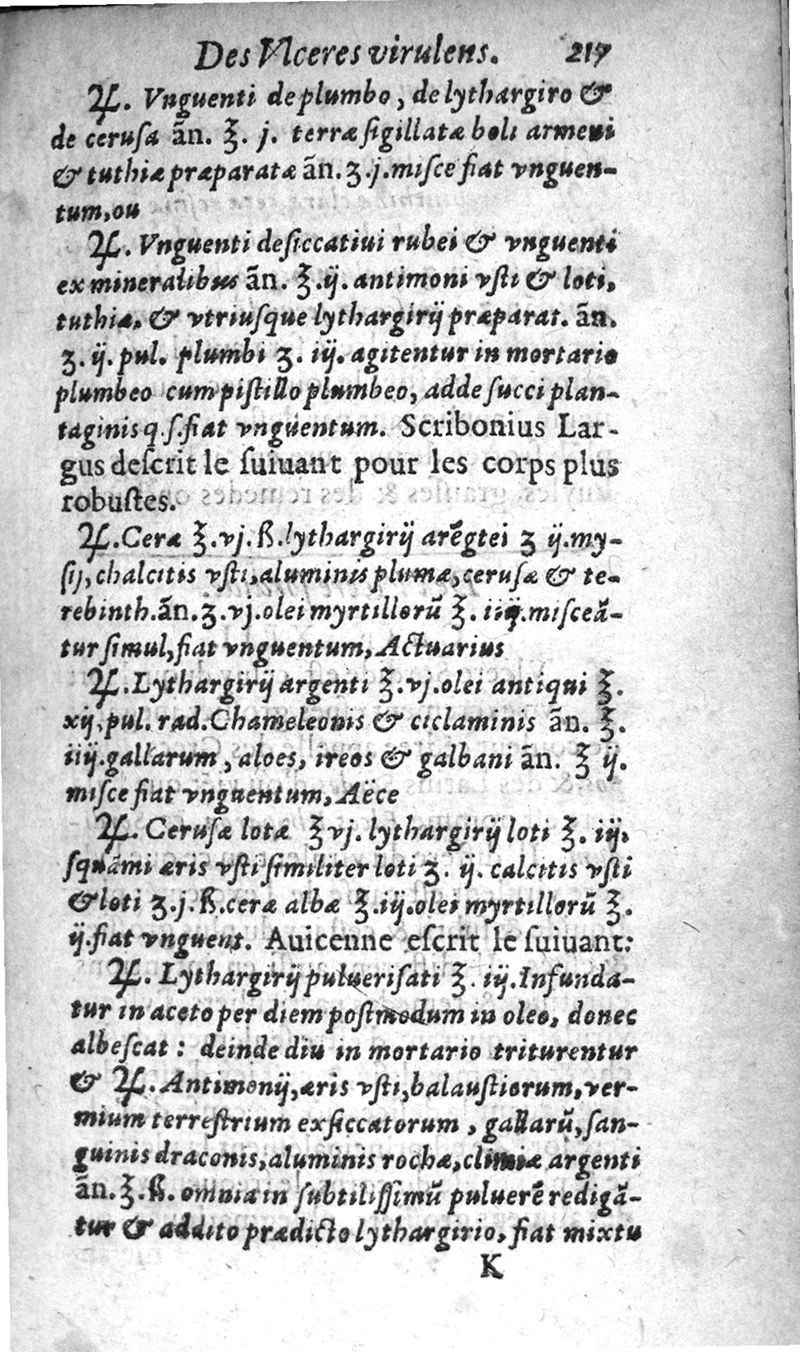 Des Vlceres virulens. 217
♃. Vnguenti de plumbo, de lythargiro &
de cerusa ān. ℥. j. terræ sigillatæ boli armeni
& tuthiæ præparatæ ān. ʒ. j. misce fiat vnguen-
tum, ou
♃. Vnguenti desiccatiui rubei & vnguenti
ex mineralibus ān. ℥. ij. antimoni vsti & loti,
tuthiæ, & vtriusque lythargirij præparat. ān.
ʒ. ij. pul. plumbi ʒ. iij. agitentur in mortario
plumbeo cum pistillo plumbeo, adde succi plan-
taginis q. s. fiat vnguentum. Scribonius Lar-
gus descrit le suiuant pour les corps plus
robustes.
♃. Ceræ ℥. vj. ß. lythargirij arẽgtei ʒ ij. my-
sij, chalcitis vsti, aluminis plumæ, cerusæ & te-
rebinth. ān. ʒ. vj. olei myrtillorũ ℥. iiij. misceā-
tur simul, fiat vnguentum, Actuarius
♃. Lythargirij argenti ℥. vj. olei antiqui ℥.
xij. pul. rad. Chameleonis & ciclaminis ān. ℥.
iiij. gallarum, aloes, ireos & galbani ān. ℥ ij.
misce fiat vnguentum, Aëce
♃. Cerusæ lotæ ℥ vj. lythargirij loti ℥. iij.
squāmi æris vsti similiter loti ʒ. ij. calcitis vsti
& loti ʒ. j. ß. ceræ albæ ℥. iij. olei myrtillorũ ℥.
ij. fiat vnguent. Auicenne escrit le suiuant:
♃. Lythargirij puluerisati ℥. iij. Infunda-
tur in aceto per diem postmodum in oleo, donec
albescat: deinde diu in mortario triturentur
& ♃. Antimonij, æris vsti, balaustiorum, ver-
mium terrestrium exsiccatorum, gallarũ, san-
guinis draconis, aluminis rochæ, climiæ argenti
ān. ℥. ß. omnia in subtilissimũ puluerẽ redigā-
tur & addito prædicto lythargirio, fiat mixtu
K